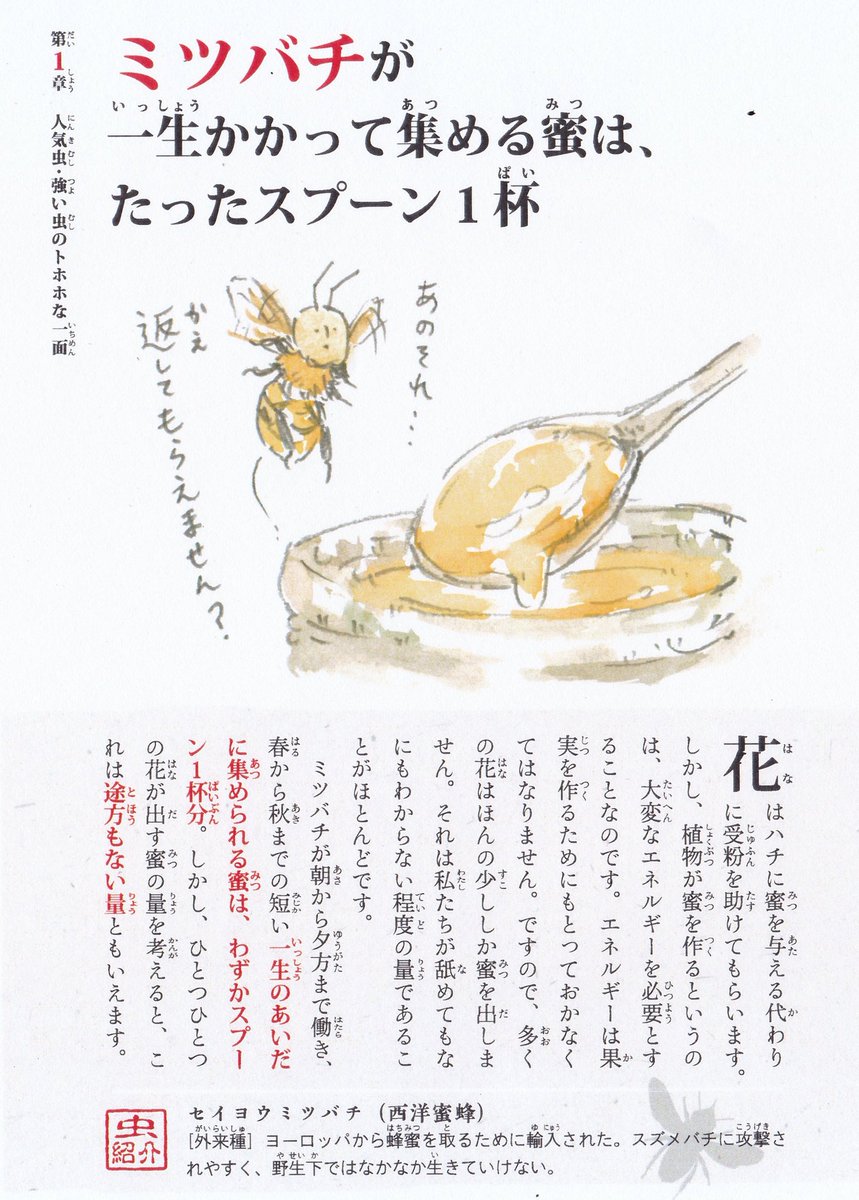 第1章　人気虫・強い虫のトホホな一面
ミツバチが
一生かかって集める蜜は、
たったスプーン1杯
あのそれ…
返してもらえません?
花はハチに蜜を与える代わり
に受粉を助けてもらいます。
しかし、植物が蜜を作るというの
は、大変なエネルギーを必要とす
ることなのです。エネルギーは果
実を作るためにもとっておかなく
てはなりません。ですので、多く
の花はほんの少ししか蜜を出しま
せん。それは私たちが舐めてもな
にもわからない程度の量であるこ
とがほとんどです。
ミツバチが朝から夕方まで働き、
春から秋までの短い一生のあいだ
に集められる蜜は、わずかスプー
ン1杯分。しかし、ひとつひとつ
の花が出す蜜の量を考えると、こ
れは途方もない量ともいえます。
虫紹介
セイヨウミツバチ（西洋蜜蜂）
［外来種］ヨーロッパから蜂蜜を取るために輸入された。スズメバチに攻撃さ
れやすく、野生下ではなかなか生きていけない。